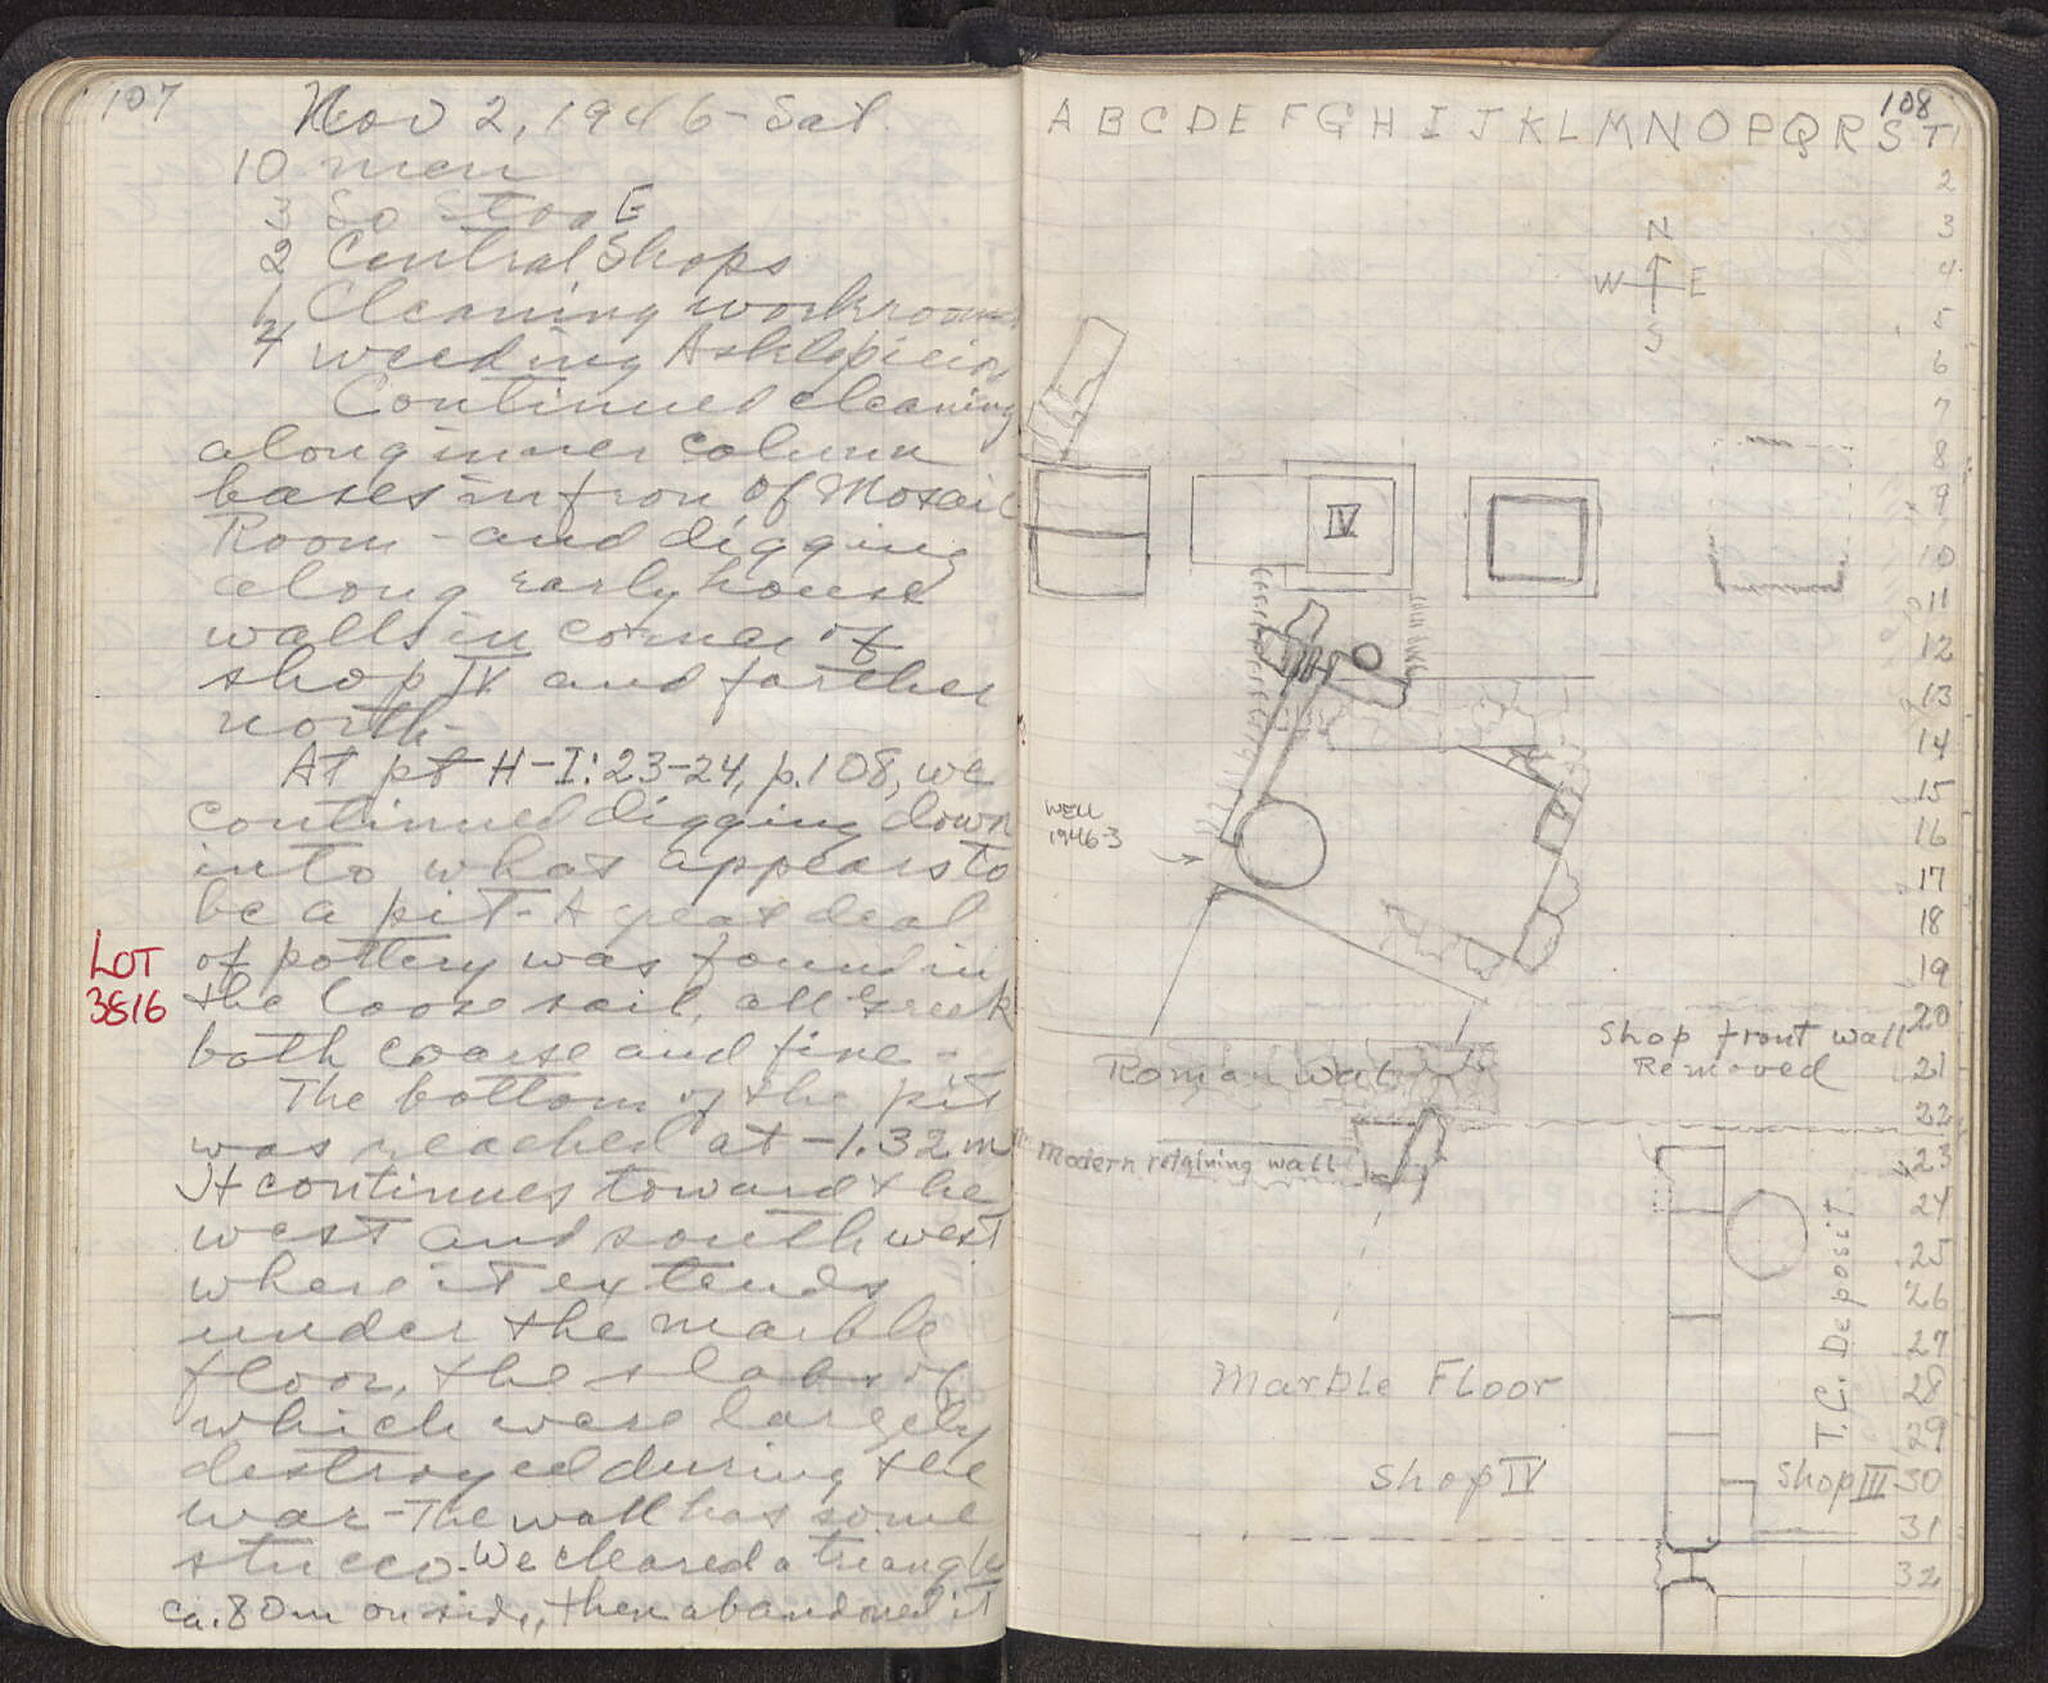 107
Nov 2, 1946 - Sat.
10 men
3 So Stoa E
2 Central Shops
1 Cleaning workrooms
4 weeding Asklepieion
Continued cleaning
along inner column
bases in fron of Mosaic
Room - and digging
along early house
walls in corner of
shop IV and farther
north -
At pt H-I: 23-24, p. 108, we
continued digging down
into what appears to
be a pit - A great deal
LOT
3816
of pottery was found in
the loose soil, all Greek
both coarse and fine -
The bottom of the pit
was reached at -1.32 m
It continues toward the
west and southwest
where it extends
under the marble
floor, the slabs of
which were largely
destroyed during the
war - The wall has some
stucco - We cleared a triangle
ca. 80m on side, then abandoned it
108
A B C D E F G H I J K L M N O P Q R S T 1
2
3
N
4
W E
5
S
6
7
8
9
IV
10
11
12
13
14
15
WELL
1946-3
16
17
18
19
20
Shop front wall
Removed
21
Roman wall
22
Modern retaining wall
23
24
25
26
27
T.C. Deposit
Marble Floor
28
29
Shop IV
Shop III
30
31
32